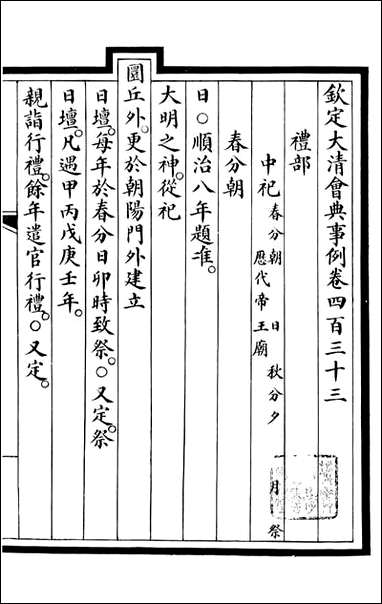 欽定大清會典事例卷四百三十三
禮部
中祀 春分朝日 秋分夕月 祭歷代帝王廟
春分朝
日○順治八年題准。
大明之神。從祀
圜丘外。更於朝陽門外建立
日壇。每年於春分日卯時致祭。○又定。祭
日壇。凡遇甲丙戊庚壬年。
親詣行禮。餘年遣官行禮。○又定。